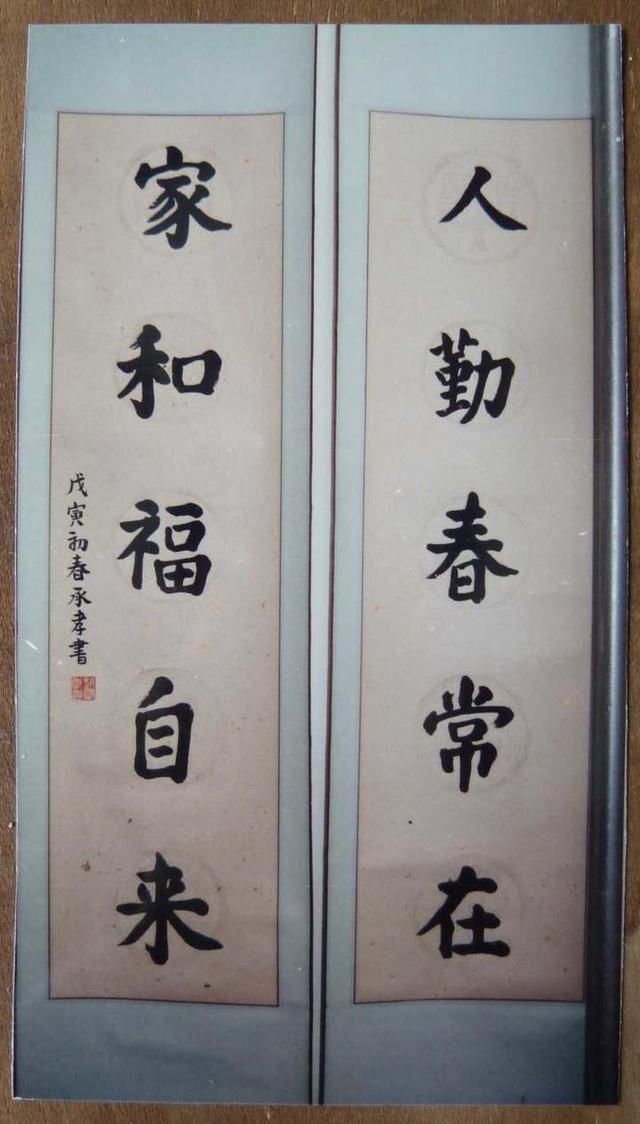 人勤春常在
家和福自来
戊寅初春承孝書